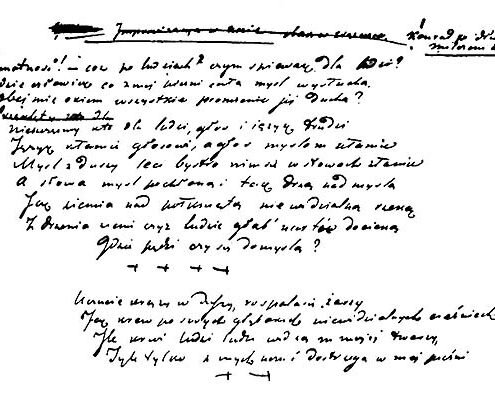 Konrad po
motność! – coż po ludziach? czym śpiewak dla ludzi?
dzie człowiek co z mej pieśni całą myśl wysłucha,
bejmie okiem wszystkie promienie jej Ducha?
Nieszczęsny kto dla ludzi, głos i język trudzi
Język kłamie głosowi, a głos myślom kłamie
Myśl z duszy leci bystro nim się w słowach złamie
A słowa myśl pochłoną i tak drżą nad myślą
Jak ziemia nad połkniętą niewidzialną rzeką
Z drżenia ziemi czyż ludzie głąb nurtów docieką
Gdzie pędzi czy się domyślą?
+ + + +
Uczucie krąży w duszy, rozpala się żarzy
Jak krew po swych głębokich niewidzialnych cieśniach
Ile krwi ludzie widzą w mojej twarzy,
Tyle tylko z mych uczuć dostrzegą w mej pieśni
+ +